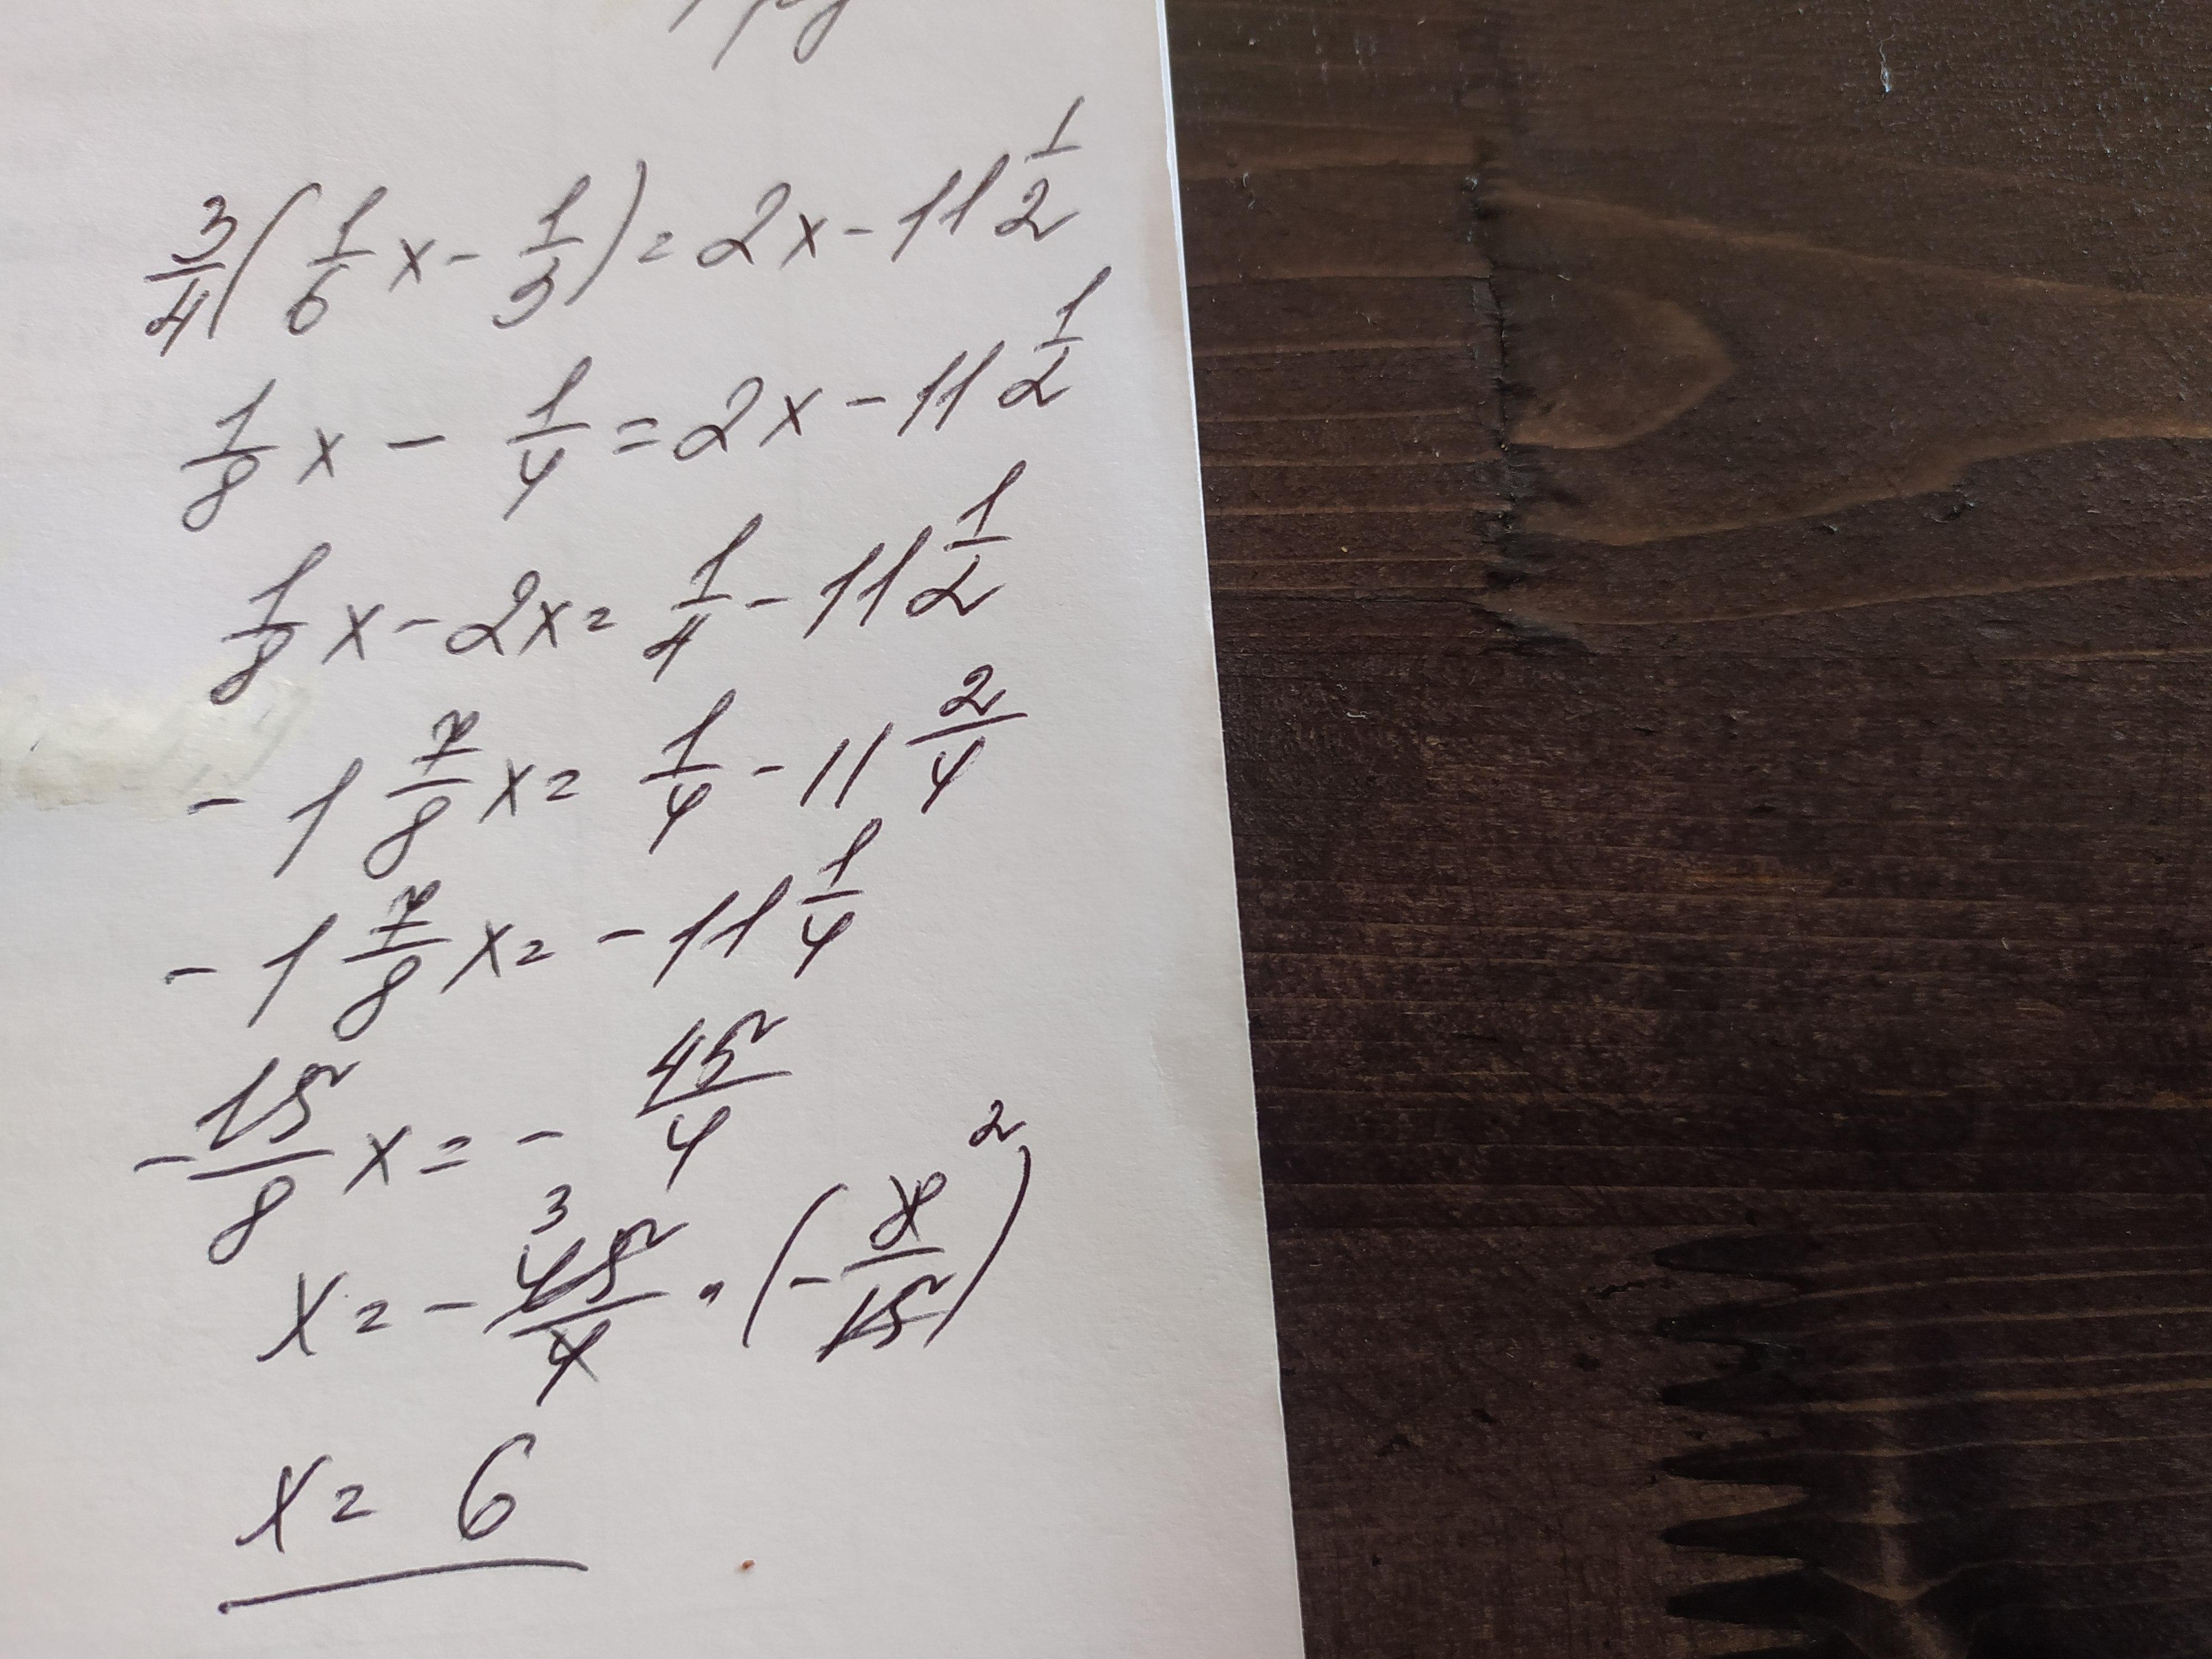 3/4(1/6x - 1/3) = 2x - 11 1/2
1/8x - 1/4 = 2x - 11 1/2
1/8x - 2x = 1/4 - 11 1/2
- 1 7/8x = 1/4 - 11 2/4
- 1 7/8x = - 11 1/4
- 15/8x = - 45/4
x = - 45/4 · (- 8/15) 3 2
x = 6